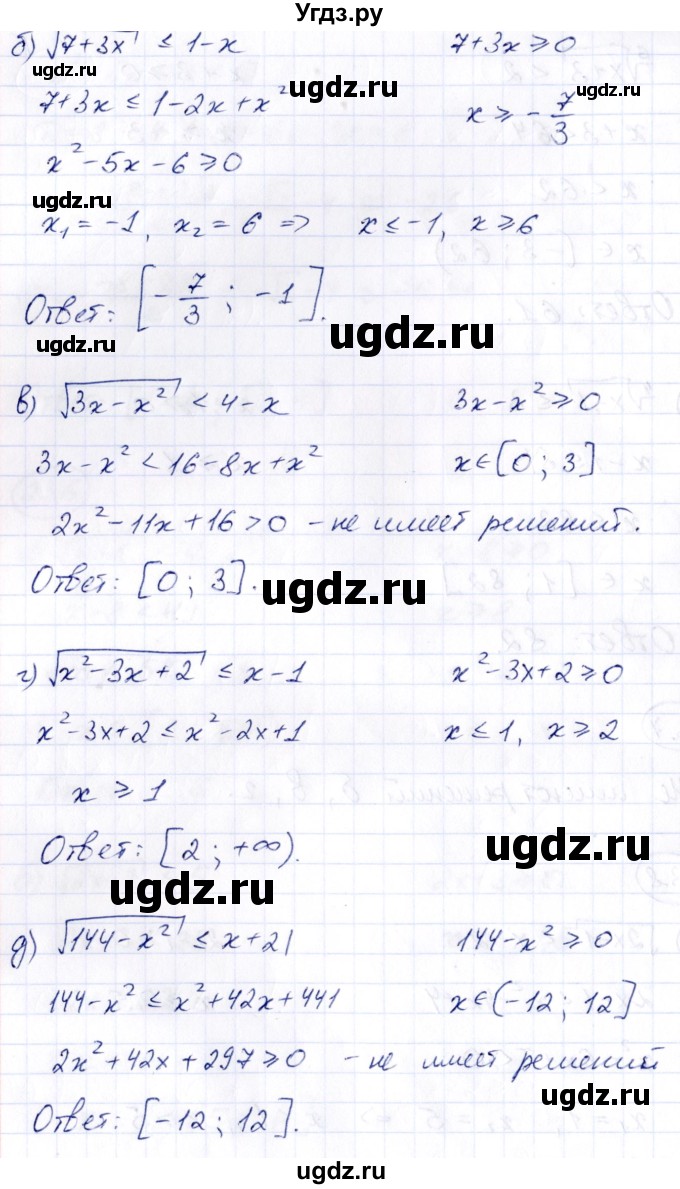 Угдз.ру
б) √(7+3x) ≤ 1-x 7+3x ≥ 0
ugdz.ru
ugdz.ru
ugdz.ru
7+3x ≤ 1-2x+x² x ≥ -7/3
x²-5x-6 ≥ 0
ugdz.ru
x₁=-1, x₂=6 => x ≤ -1, x ≥ 6
Ответ: [-7/3; -1].
ugdz.ru
ugdz.ru
в) √(3x-x²) < 4-x 3x-x² ≥ 0
3x-x² < 16-8x+x² x∈[0; 3]
2x²-11x+16 > 0 - не имеет решений.
Ответ: [0; 3].
ugdz.ru
г) √(x²-3x+2) ≤ x-1 x²-3x+2 ≥ 0
x²-3x+2 ≤ x²-2x+1 x ≤ 1, x ≥ 2
x ≥ 1
Ответ: [2; +∞).
ugdz.ru
ugdz.ru
д) √(144-x²) ≤ x+21 144-x² ≥ 0
144-x² ≤ x²+42x+441 x∈(-12; 12]
2x²+42x+297 ≥ 0 - не имеет решений
Ответ: [-12; 12].
ugdz.ru